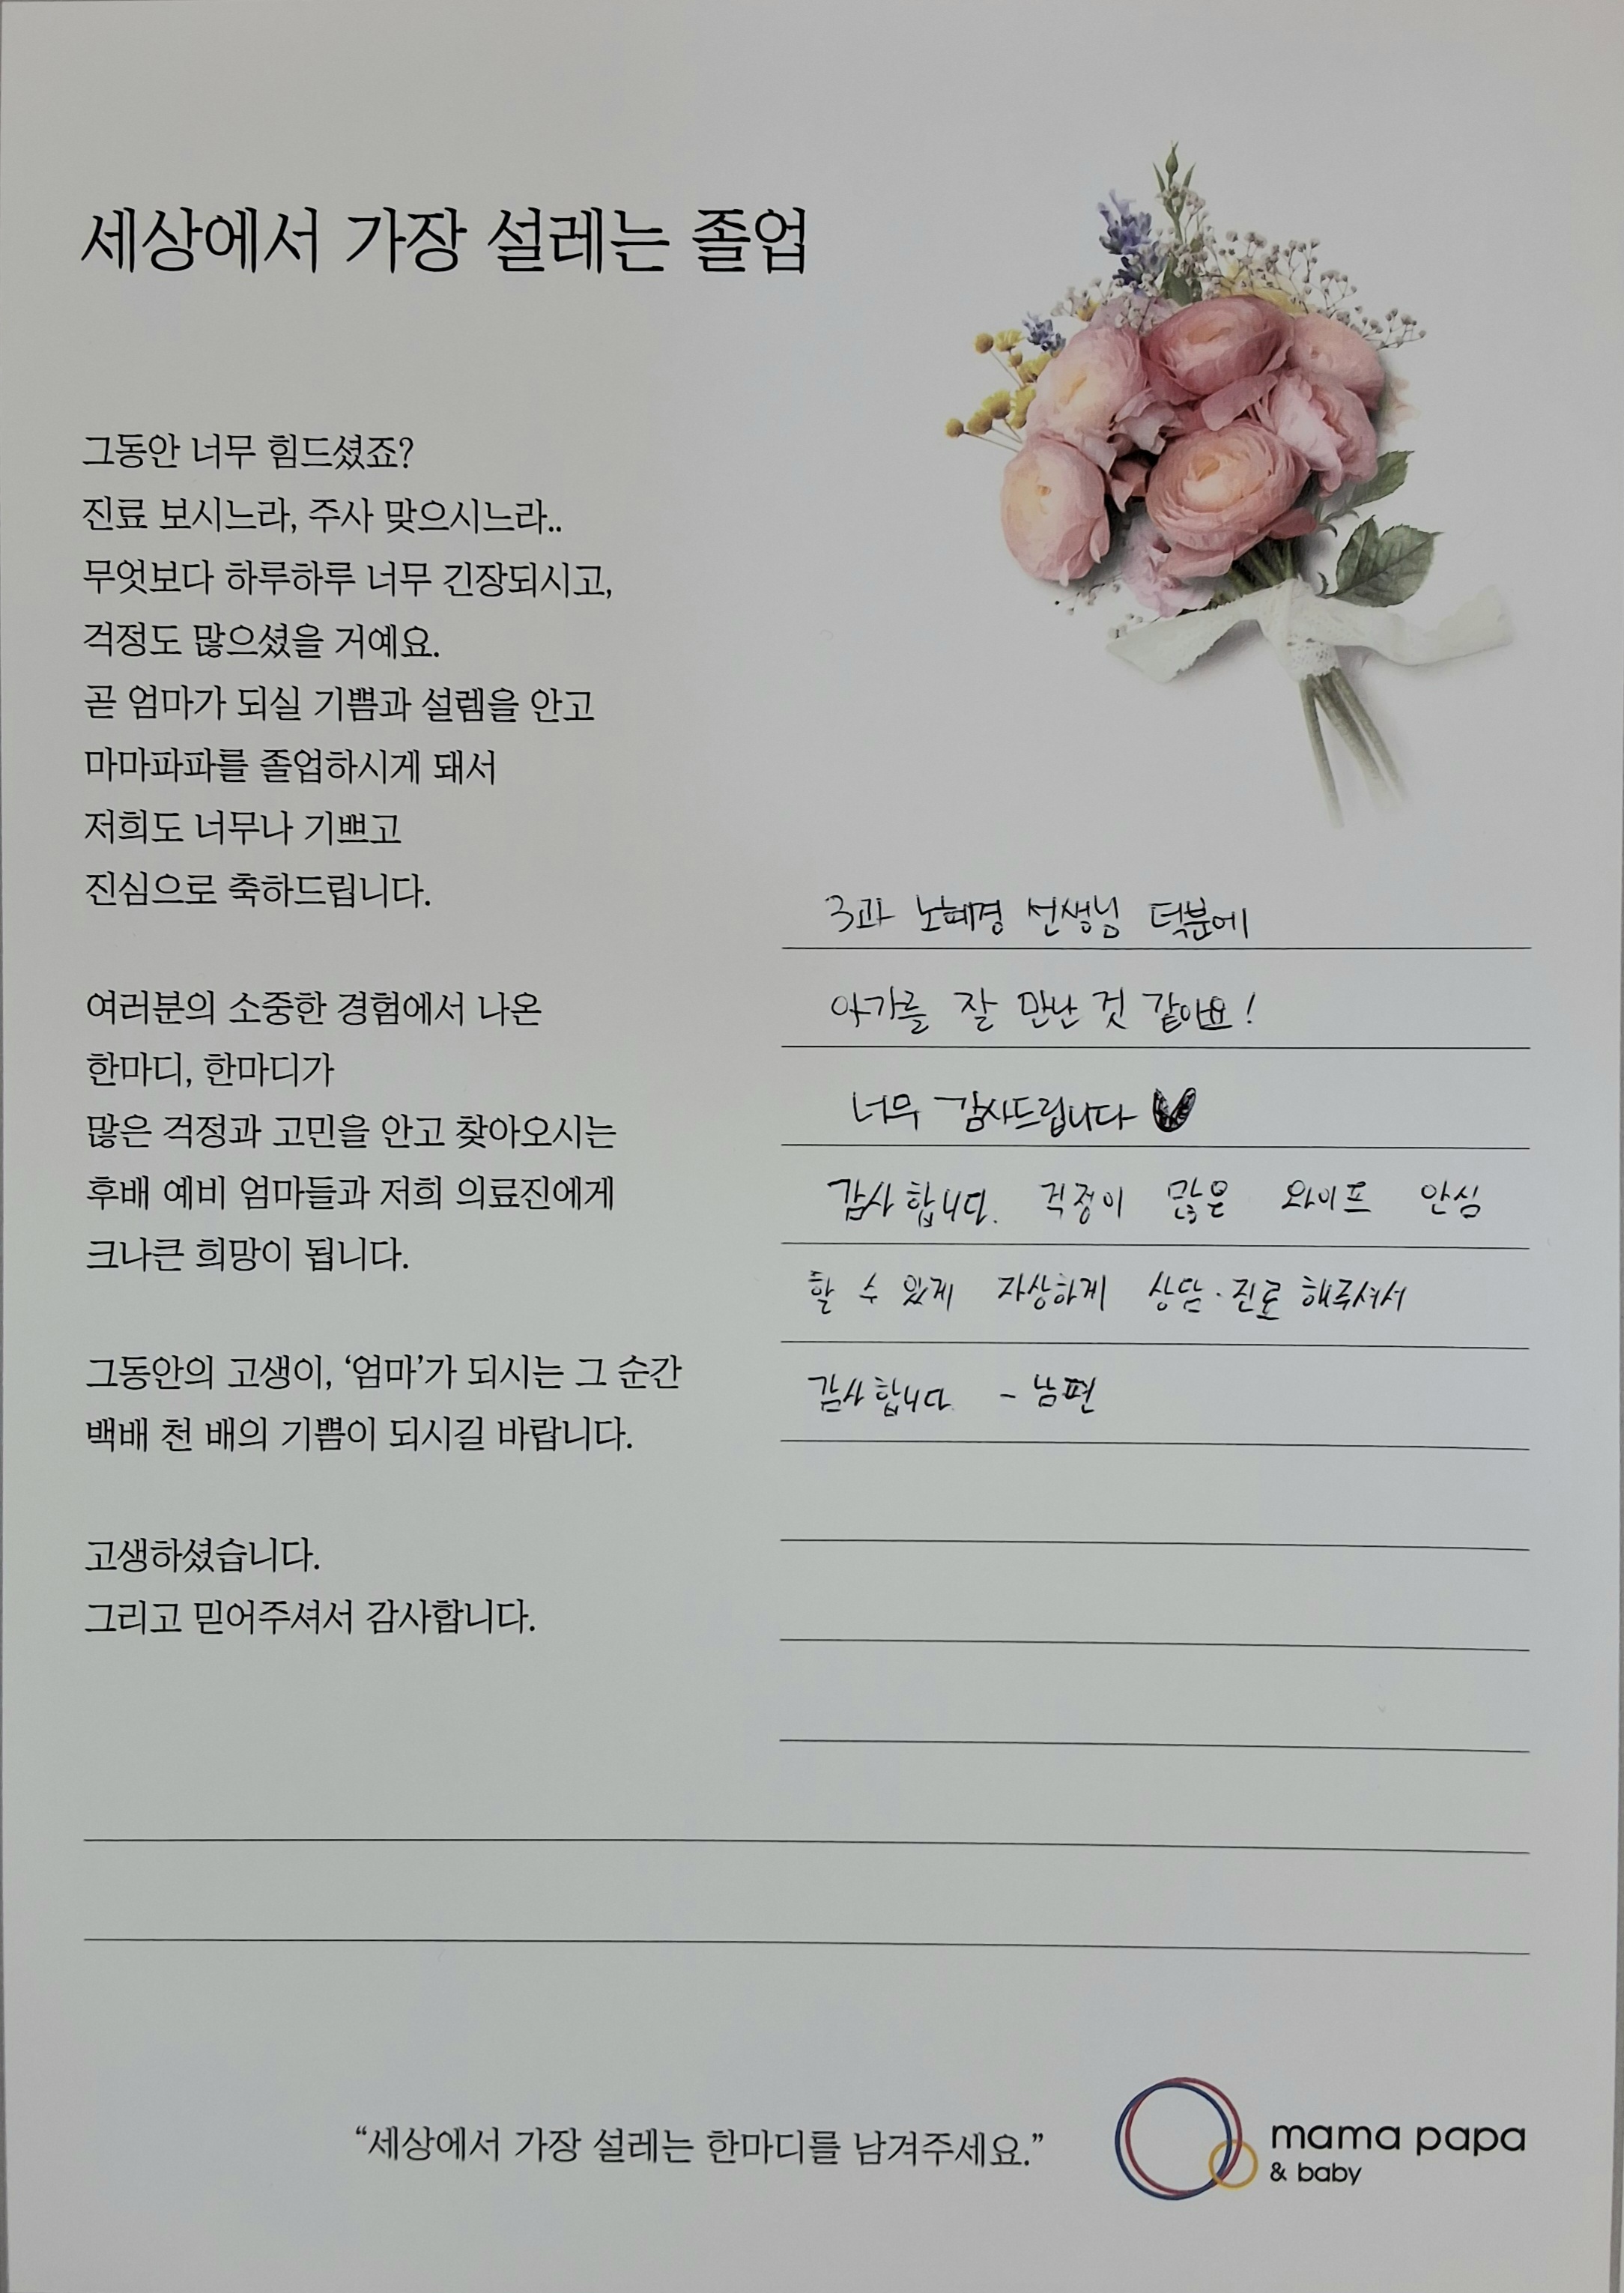 세상에서 가장 설레는 졸업
그동안 너무 힘드셨죠?
진료 보시느라, 주사 맞으시느라..
무엇보다 하루하루 너무 긴장되시고,
걱정도 많으셨을 거예요.
곧 엄마가 되실 기쁨과 설렘을 안고
마마파파를 졸업하시게 돼서
저희도 너무나 기쁘고
진심으로 축하드립니다.
여러분의 소중한 경험에서 나온
한마디, 한마디가
많은 걱정과 고민을 안고 찾아오시는
후배 예비 엄마들과 저희 의료진에게
크나큰 희망이 됩니다.
그동안의 고생이, ‘엄마’가 되시는 그 순간
백배 천 배의 기쁨이 되시길 바랍니다.
고생하셨습니다.
그리고 믿어주셔서 감사합니다.
3과 노혜경 선생님 덕분에
아가를 잘 만난 것 같아요!
너무 감사드립니다
감사합니다. 걱정이 많은 와이프 안심
할 수 있게 자상하게 상담·진료 해주셔서
감사합니다 - 남편
“세상에서 가장 설레는 한마디를 남겨주세요.”
mama papa
& baby